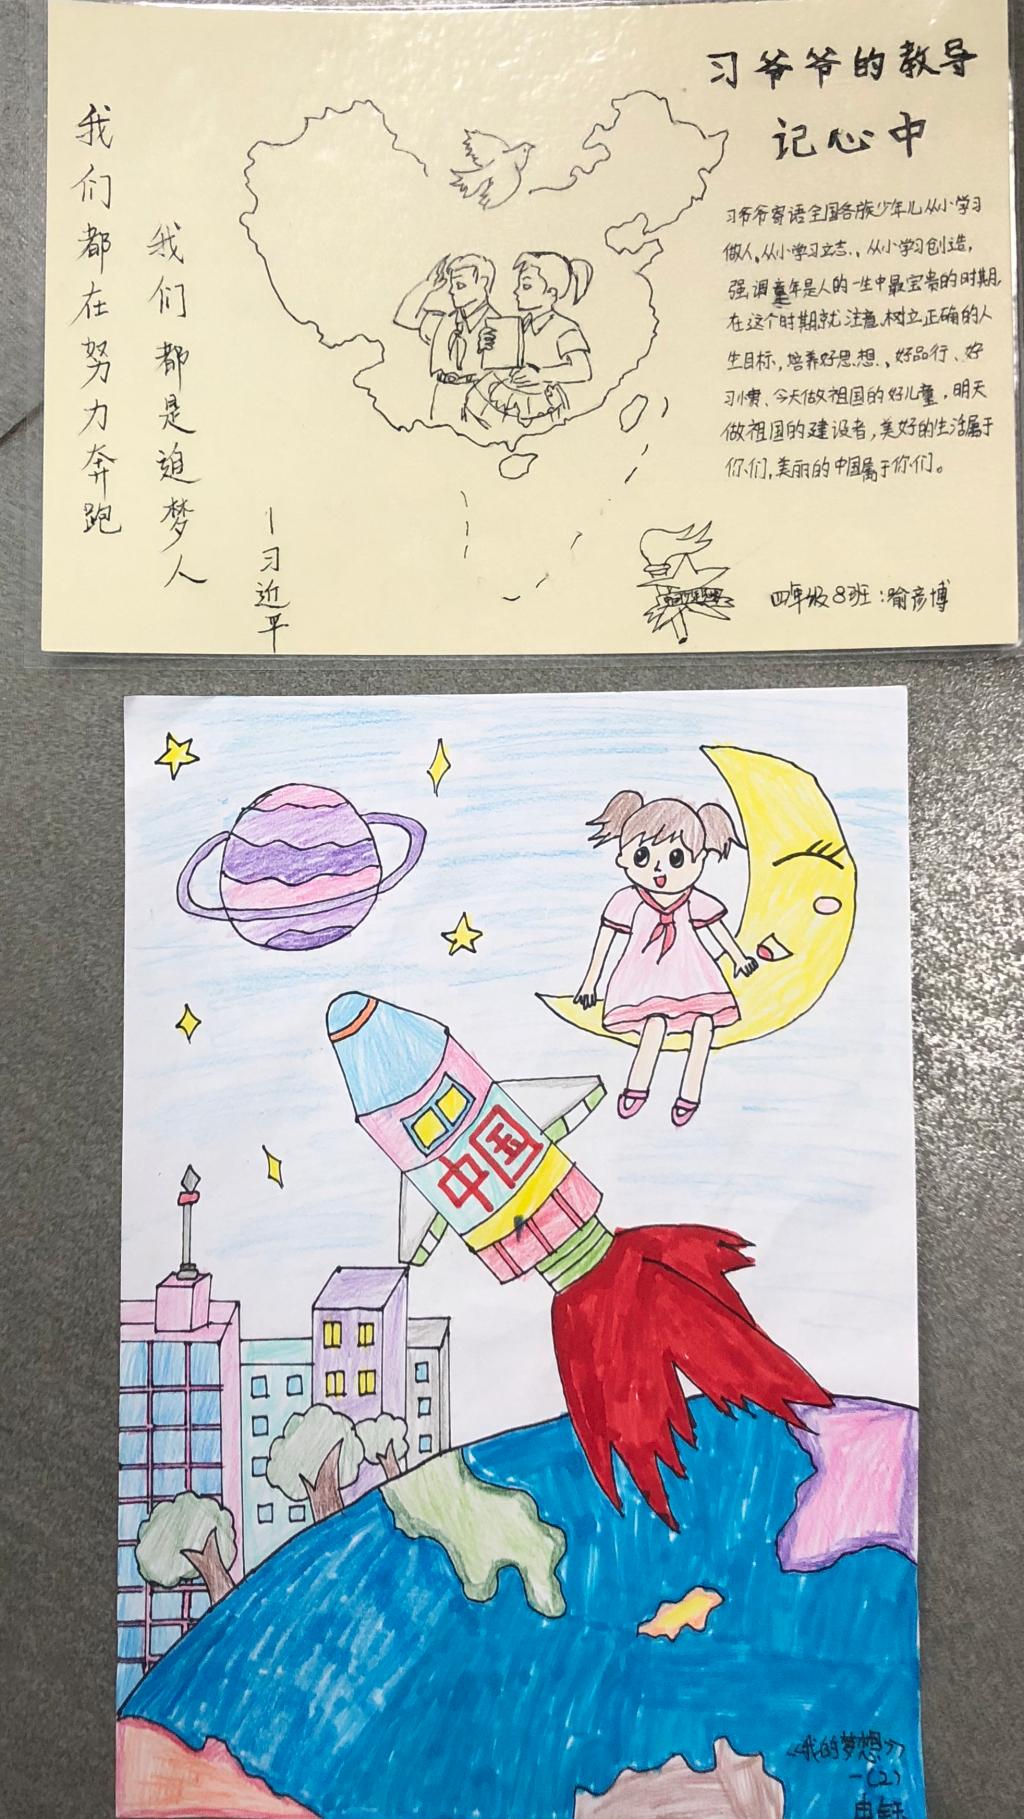 习爷爷的教导
记心中
我们都在努力奔跑
我们都是追梦人
—习近平
习爷爷寄语全国各族少年儿从小学习
做人、从小学习立志、从小学习创造,
强调童年是人的一生中最宝贵的时期,
在这个时期就注意树立正确的人
生目标,培养好思想、好品行、好
习惯、今天做祖国的好儿童,明天
做祖国的建设者,美好的生活属于
你们,美丽的中国属于你们。
四年级8班:喻彦博
中国
《我的梦想》
一(2)